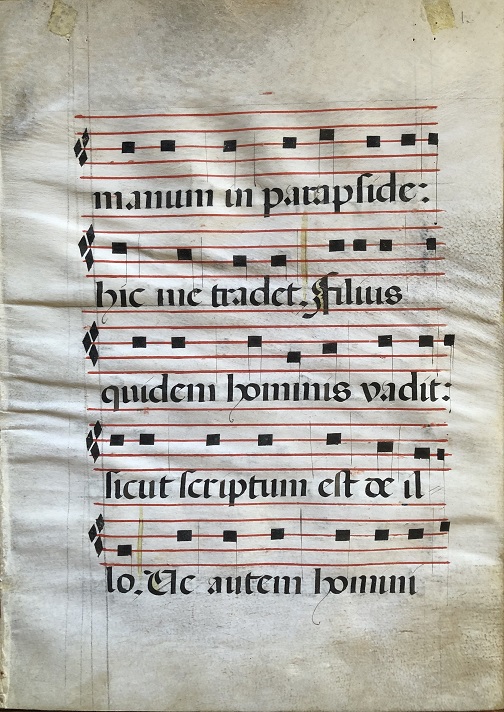 manum in parapside:
hic me tradet. Filius
quidem hominis vadit:
sicut scriptum est de il
lo. Ve autem homini